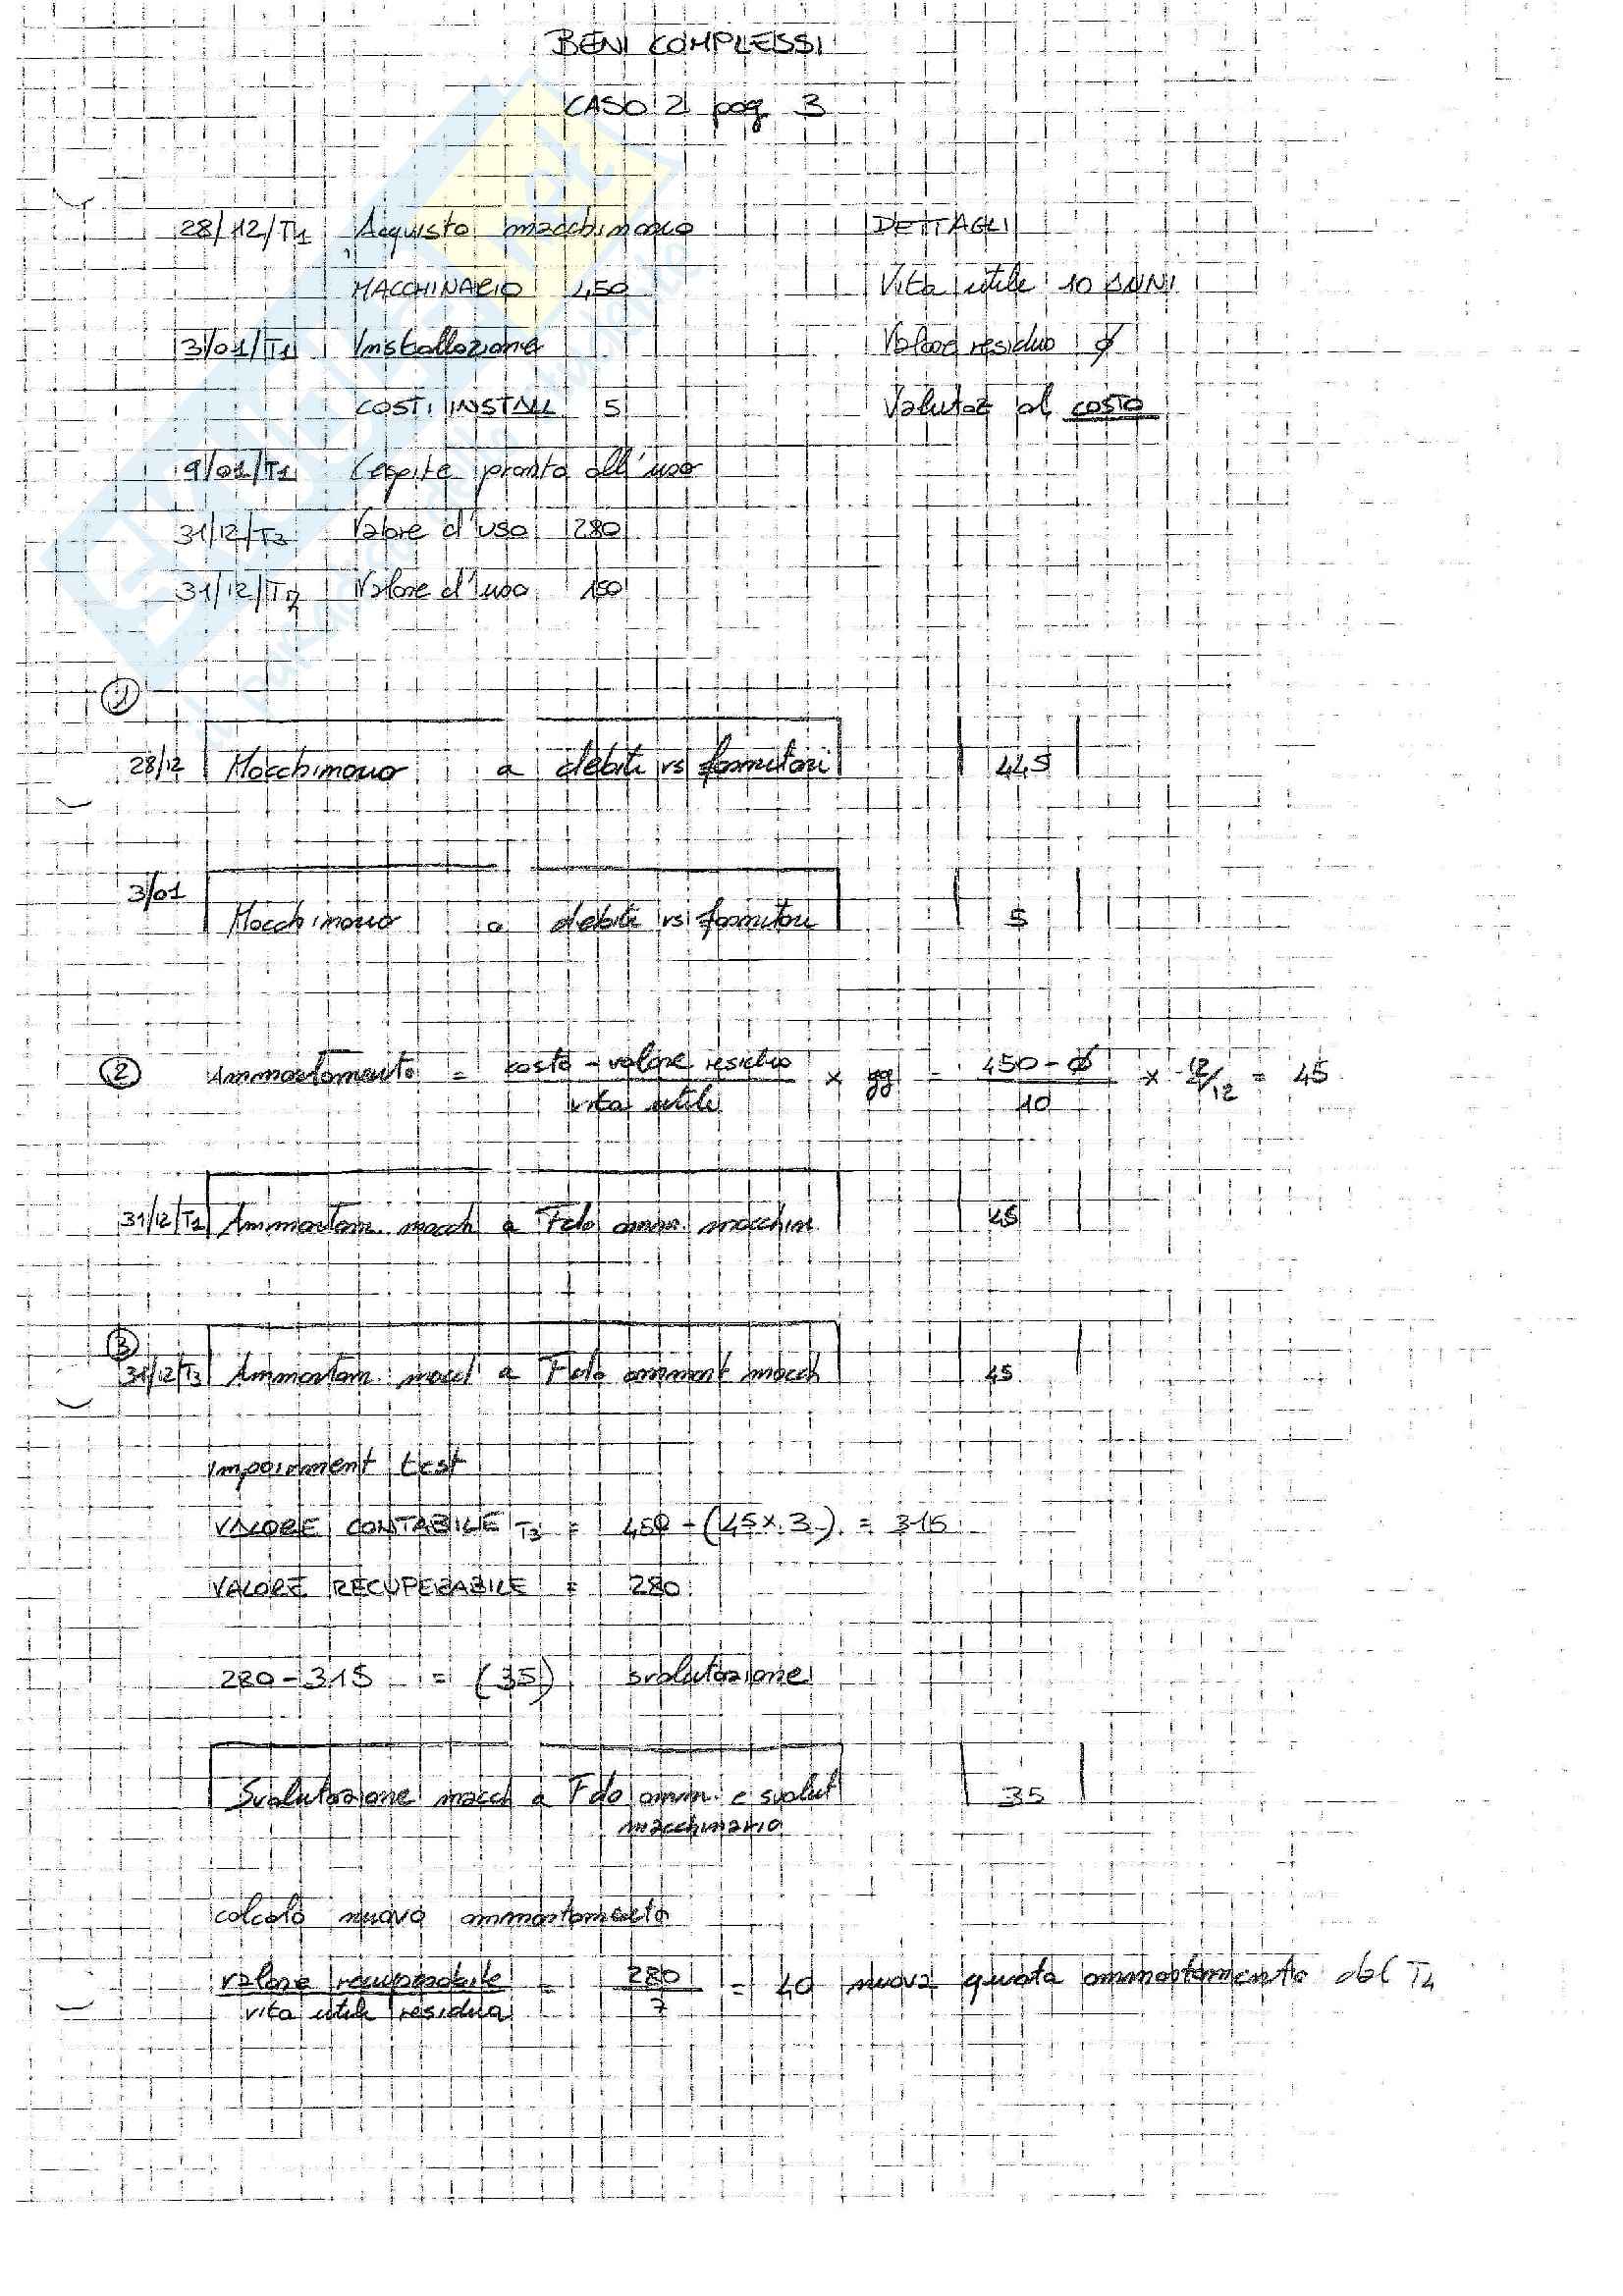 BENI COMPLESSI
CASO 2 pag 3
28/12/T1 Acquisto macchinario DETTAGLI
MACCHINARIO 450 Vita utile 10 ANNI
3/01/T1 Installazione Valore residuo ∅
COSTI INSTALL 5 Valutaz al costo
9/01/T1 Cespite pronto all'uso
31/12/T3 Valore d'uso 280
31/12/ Valore d'uso 150
①
28/12 Macchinario a debiti vs fornitori 445
3/01
Macchinario a debiti vs fornitori 5
② Ammortamento = costo - valore residuo / vita utile × gg = 450-∅ / 10 × 12/12 = 45
31/12/T1 Ammortam. macch a Fdo amm. macchin 45
③
31/12/T3 Ammortam. macch a Fdo ammort macch 45
Impairment test
VALORE CONTABILE T3 = 450 - (45×3) = 315
VALORE RECUPERABILE = 280
280-315 = (35) svalutazione
Svalutazione macch a Fdo amm. e svalut 35
macchinario
calcolo nuovo ammortamento
valore recuperabile / vita utile residua = 280 / 7 = 40 nuova quota ammortamento dal T4